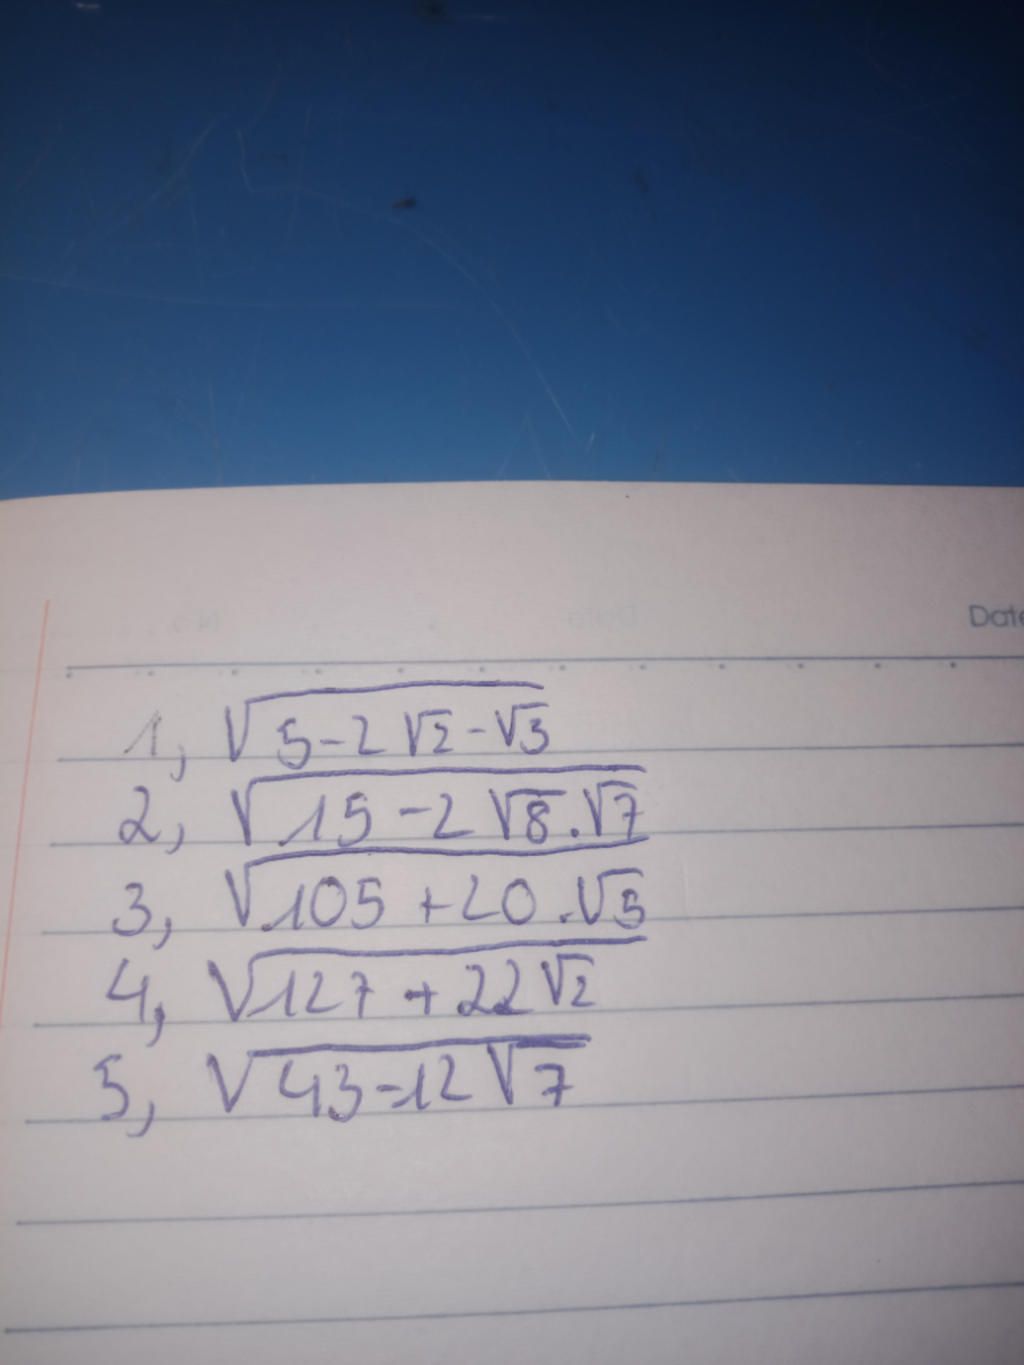 Date
1, √(5-2√2-√3)
2, √(15-2√8.√7)
3, √(105+20.√5)
4, √(127+22√2)
5, √(43-12√7)